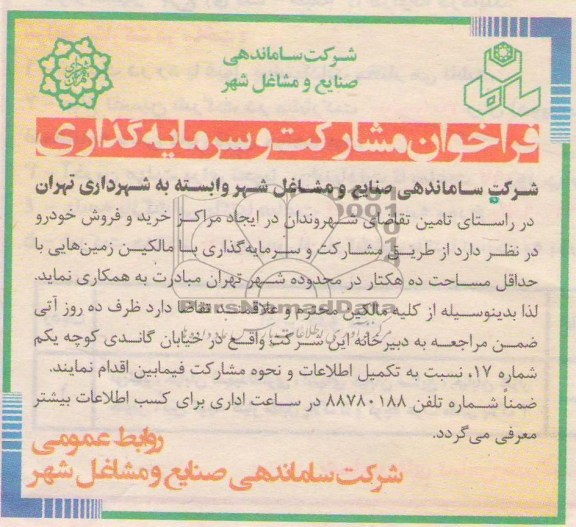 شرکت ساماندهی
صنایع و مشاغل شهر
فراخوان مشارکت و سرمایه‌گذاری
شرکت ساماندهی صنایع و مشاغل شهر وابسته به شهرداری تهران
در راستای تامین تقاضای شهروندان در ایجاد مراکز خرید و فروش خودرو
در نظر دارد از طریق مشارکت و سرمایه‌گذاری با مالکین زمین‌هایی با
حداقل مساحت ده هکتار در محدوده شهر تهران مبادرت به همکاری نماید.
لذا بدینوسیله از کلیه مالکین محترم و علاقمند تقاضا دارد ظرف ده روز آتی
ضمن مراجعه به دبیرخانه این شرکت واقع در خیابان گاندی کوچه یکم
شماره ۱۷، نسبت به تکمیل اطلاعات و نحوه مشارکت فیمابین اقدام نمایند.
ضمناً شماره تلفن ۸۸۷۸۰۱۸۸ در ساعت اداری برای کسب اطلاعات بیشتر
معرفی می‌گردد.
روابط عمومی
شرکت ساماندهی صنایع و مشاغل شهر
ParsNamadData